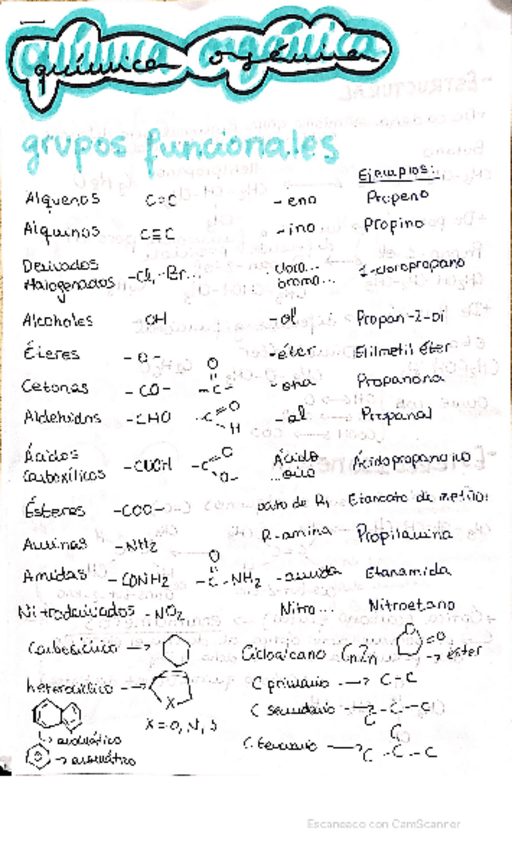 química orgánica
grupos funcionales
Ejemplos:
Alquenos C=C -eno Propeno
Alquinos C≡C -ino Propino
Derivados Halogenados -Cl, -Br... cloro... bromo... 1-cloropropano
Alcoholes OH -ol Propan-2-ol
Éteres -O- -éter Etilmetil éter
Cetonas -CO- O -C- -ona Propanona
Aldehidos -CHO -C O H -al Propanal
Ácidos carboxílicos -COOH -C O O- Ácido ...oico Ácido propanoico
Ésteres -COO- oato de R₁ Etanoato de metilo
Aminas -NH2 R-amina Propilamina
Amidas -CONH2 O -C-NH2 -amida Etanamida
Nitroderivados -NO2 Nitro... Nitroetano
Carbocíclico → Cicloalcano CnZn =O → éster
heterocíclico → X C primario → C-C
X=O, N, S C secundario → C-C-C
↳ aromático C terciario → C C-C-C
→ aromático
Escaneado con CamScanner